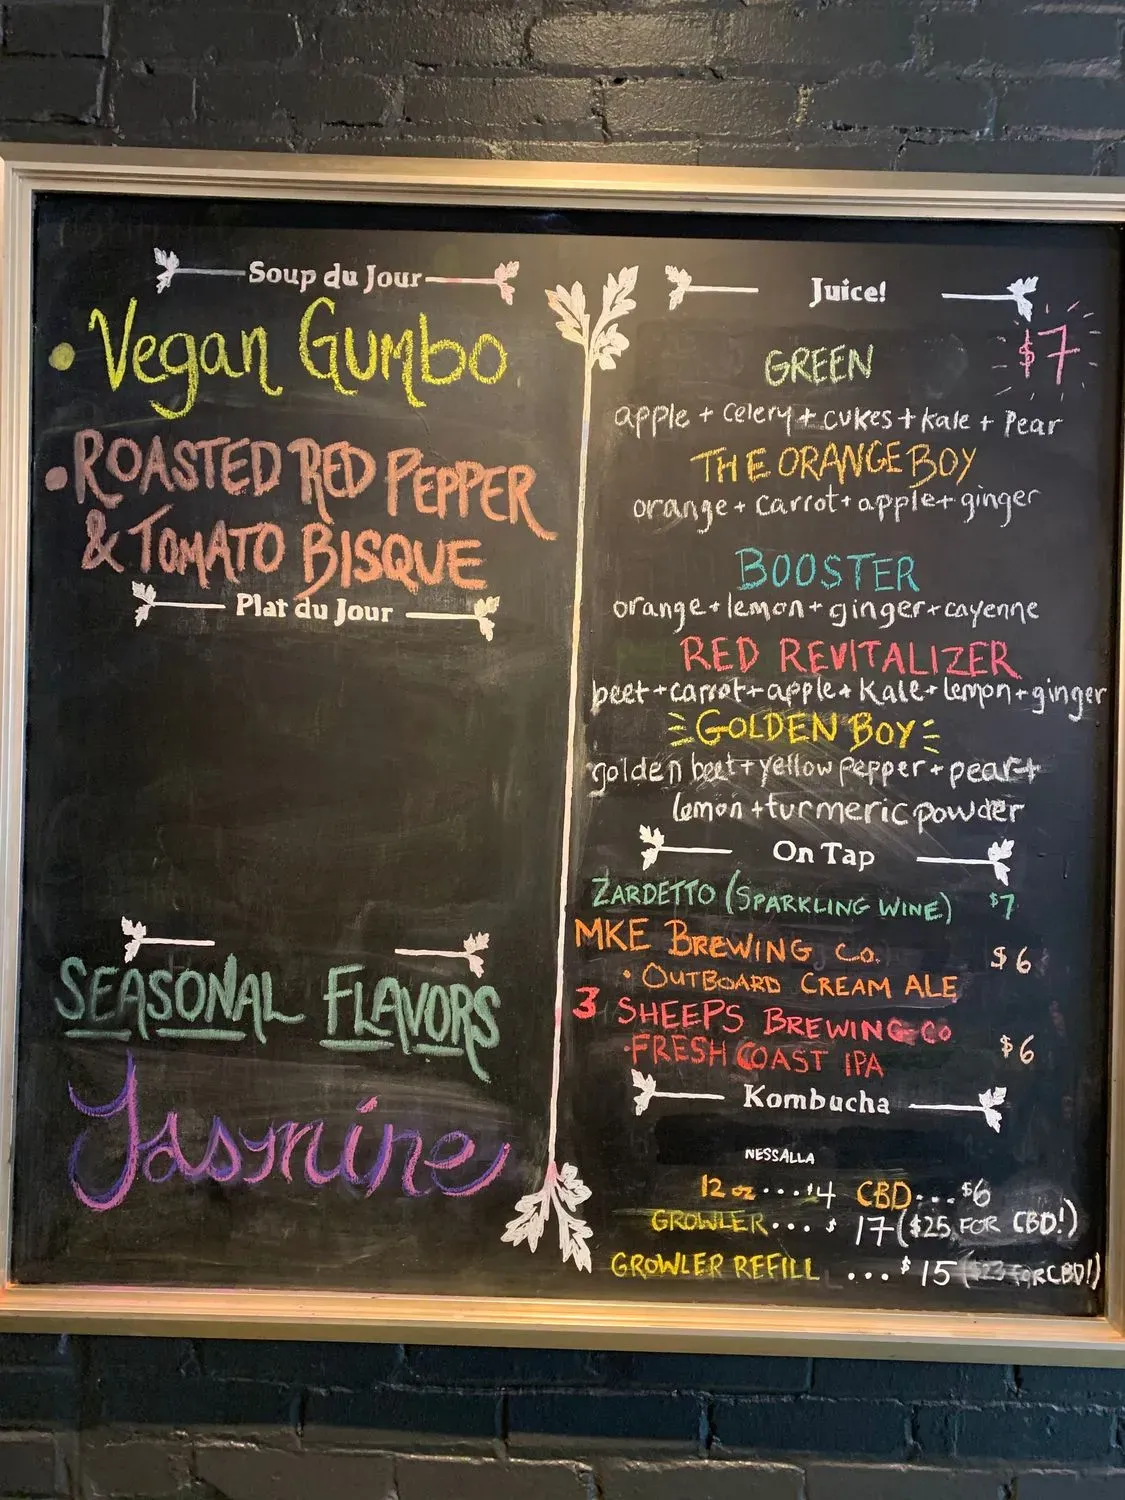 Soup du Jour
• Vegan Gumbo
• ROASTED RED PEPPER
& TOMATO BISQUE
Plat du Jour
SEASONAL FLAVORS
Jasmine
Juice!
$7
GREEN
apple + celery + cukes + kale + Pear
THE ORANGE BOY
orange + carrot + apple + ginger
BOOSTER
orange + lemon + ginger + cayenne
RED REVITALIZER
beet + carrot + apple + kale + lemon + ginger
GOLDEN BOY
golden beet + yellow pepper + pear +
lemon + turmeric powder
On Tap
ZARDETTO (SPARKLING WINE) $7
MKE BREWING Co. $6
• OUTBOARD CREAM ALE
3 SHEEPS BREWING CO
• FRESH COAST IPA $6
Kombucha
NESSALLA
12 oz ... $4 CBD ... $6
GROWLER ... $ 17 ($25 FOR CBD!)
GROWLER REFILL ... $ 15 ($23 FOR CBD!)